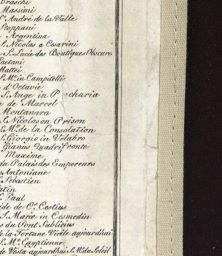 Braschi
Massimi
St André de la Valle
Stoppani
Argentina
S. Nicolas a Cesarini
S. Lucie des Boutiques Obscures
Gaetani
Mattei
S. Me. in Campitelli
d'Octavie
S. Ange in Pescharia
de Marcel
Montanara
S. Nicolas en Prison
S. Me. de la Consolation
S. Giorgio in Velabro
Gianus Quadrifronte
Maxime
du Palais des Empereurs
Antoniane
Sebastien
S. Paul
de C. Cestius
S. Marie in Cosmedin
du Pont Sublicius
de la Fortune Virile aujourdhui
S. Me. Egyptienne
de Vesta aujourdhui S. Me. du Soleil